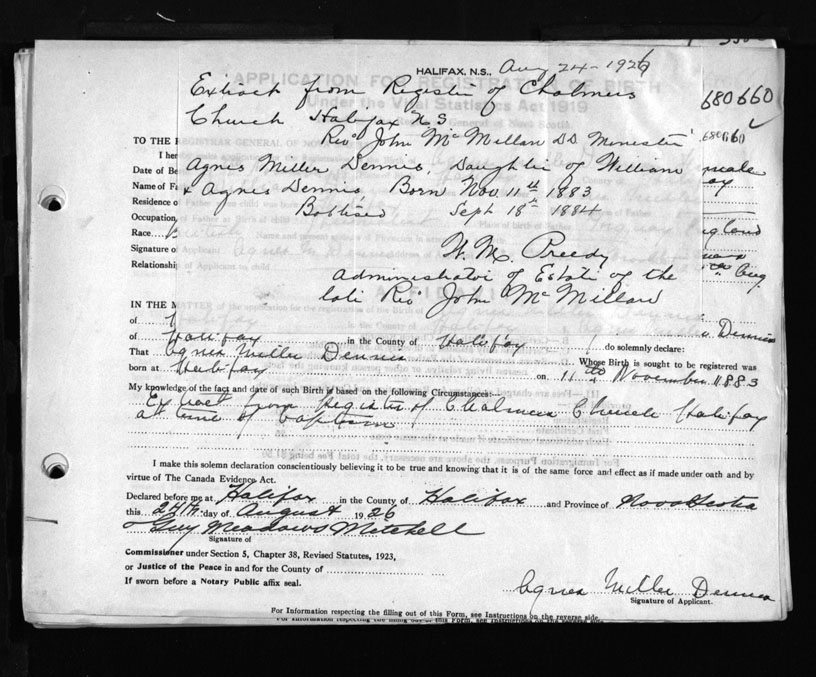 HALIFAX, N.S., Aug 24 - 1926
Extract from Register of Chalmers
Church Halifax N S
Revd John McMillan DD Minester
Agnes Miller Dennis, Daughter of William
& Agnes Dennis Born Nov. 11th 1883
Babtised Sept 18th 1884
W. M. Preedy
Administrator of Estate of the
late Rev John McMillan
680660
680660
APPLICATION FOR REGISTRATION OF BIRTH
Under the Vital Statistics Act 1919
TO THE REGISTRAR GENERAL OF
I her
Date of
Name of
Residence of
Occupation,
Race
Signature of Applicant
Relationship of Applicant
IN THE MATTER
of Dennis
of Halifax in the County of Halifax do solemnly declare:
That Agnes Miller Dennis Whose Birth is sought to be registered was
born at Halifax on 11th November 1883
My knowledge of the fact and date of such Birth is based on the following Circumstances:—
Extract from Register of Chalmers Church Halifax
at time of baptism
I make this solemn declaration conscientiously believing it to be true and knowing that it is of the same force and effect as if made under oath and by
virtue of The Canada Evidence Act.
Declared before me at Halifax in the County of Halifax and Province of Nova Scotia
this 24th day of August 1926
Guy Meadows Mitchell
Signature of
Commissioner under Section 5, Chapter 38, Revised Statutes, 1923,
or Justice of the Peace in and for the County of
If sworn before a Notary Public affix seal.
Agnes Miller Dennis
Signature of Applicant.
For Information respecting the filling out of this Form, see Instructions on the reverse side.